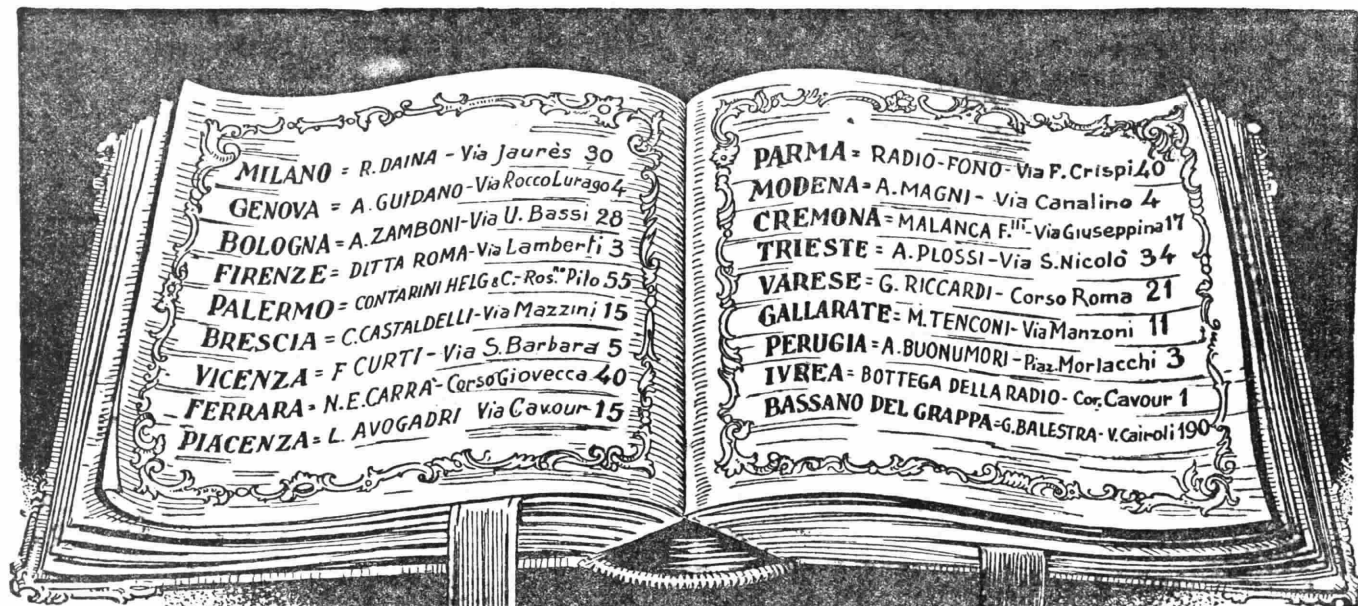 MILANO = R. DAINA - Via Jaurès 30
GENOVA = A. GUIDANO - Via Rocco Lurago 4
BOLOGNA = A. ZAMBONI - Via U. Bassi 28
FIRENZE = DITTA ROMA - Via Lamberti 3
PALERMO = CONTARINI HELG & C. - Ros.no Pilo 55
BRESCIA = C. CASTALDELLI - Via Mazzini 15
VICENZA = F CURTI - Via S. Barbara 5
FERRARA = N. E. CARRA' - Corso Giovecca 40
PIACENZA = L. AVOGADRI Via Cavour 15
PARMA = RADIO-FONO - Via F. Crispi 40
MODENA = A. MAGNI - Via Canalino 4
CREMONA = MALANCA F.lli - Via Giuseppina 17
TRIESTE = A. PLOSSI - Via S. Nicolò 34
VARESE = G. RICCARDI - Corso Roma 21
GALLARATE = M. TENCONI - Via Manzoni 11
PERUGIA = A. BUONUMORI - Piaz. Morlacchi 3
IVREA = BOTTEGA DELLA RADIO - Cor. Cavour 1
BASSANO DEL GRAPPA = G. BALESTRA - V. Cairoli 190